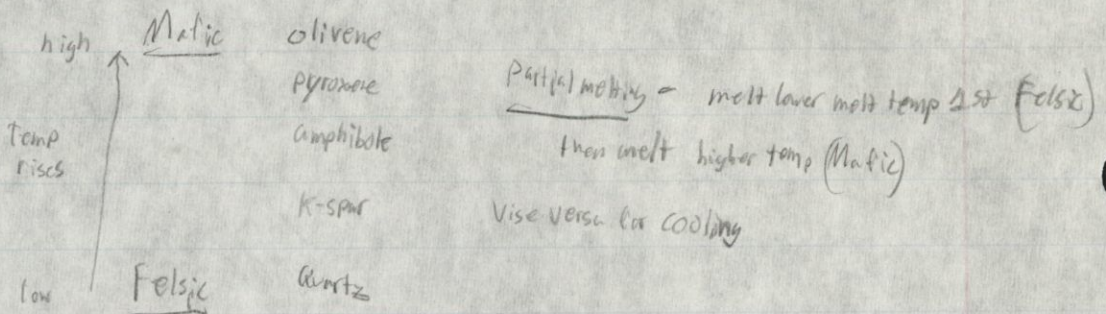 high Mafic olivene
pyroxene
Partial melting - melt lower melt temp 1st (Felsic)
Temp rises amphibole
then melt higher temp (Mafic)
K-spar
Vise versa for cooling
low Felsic Quartz